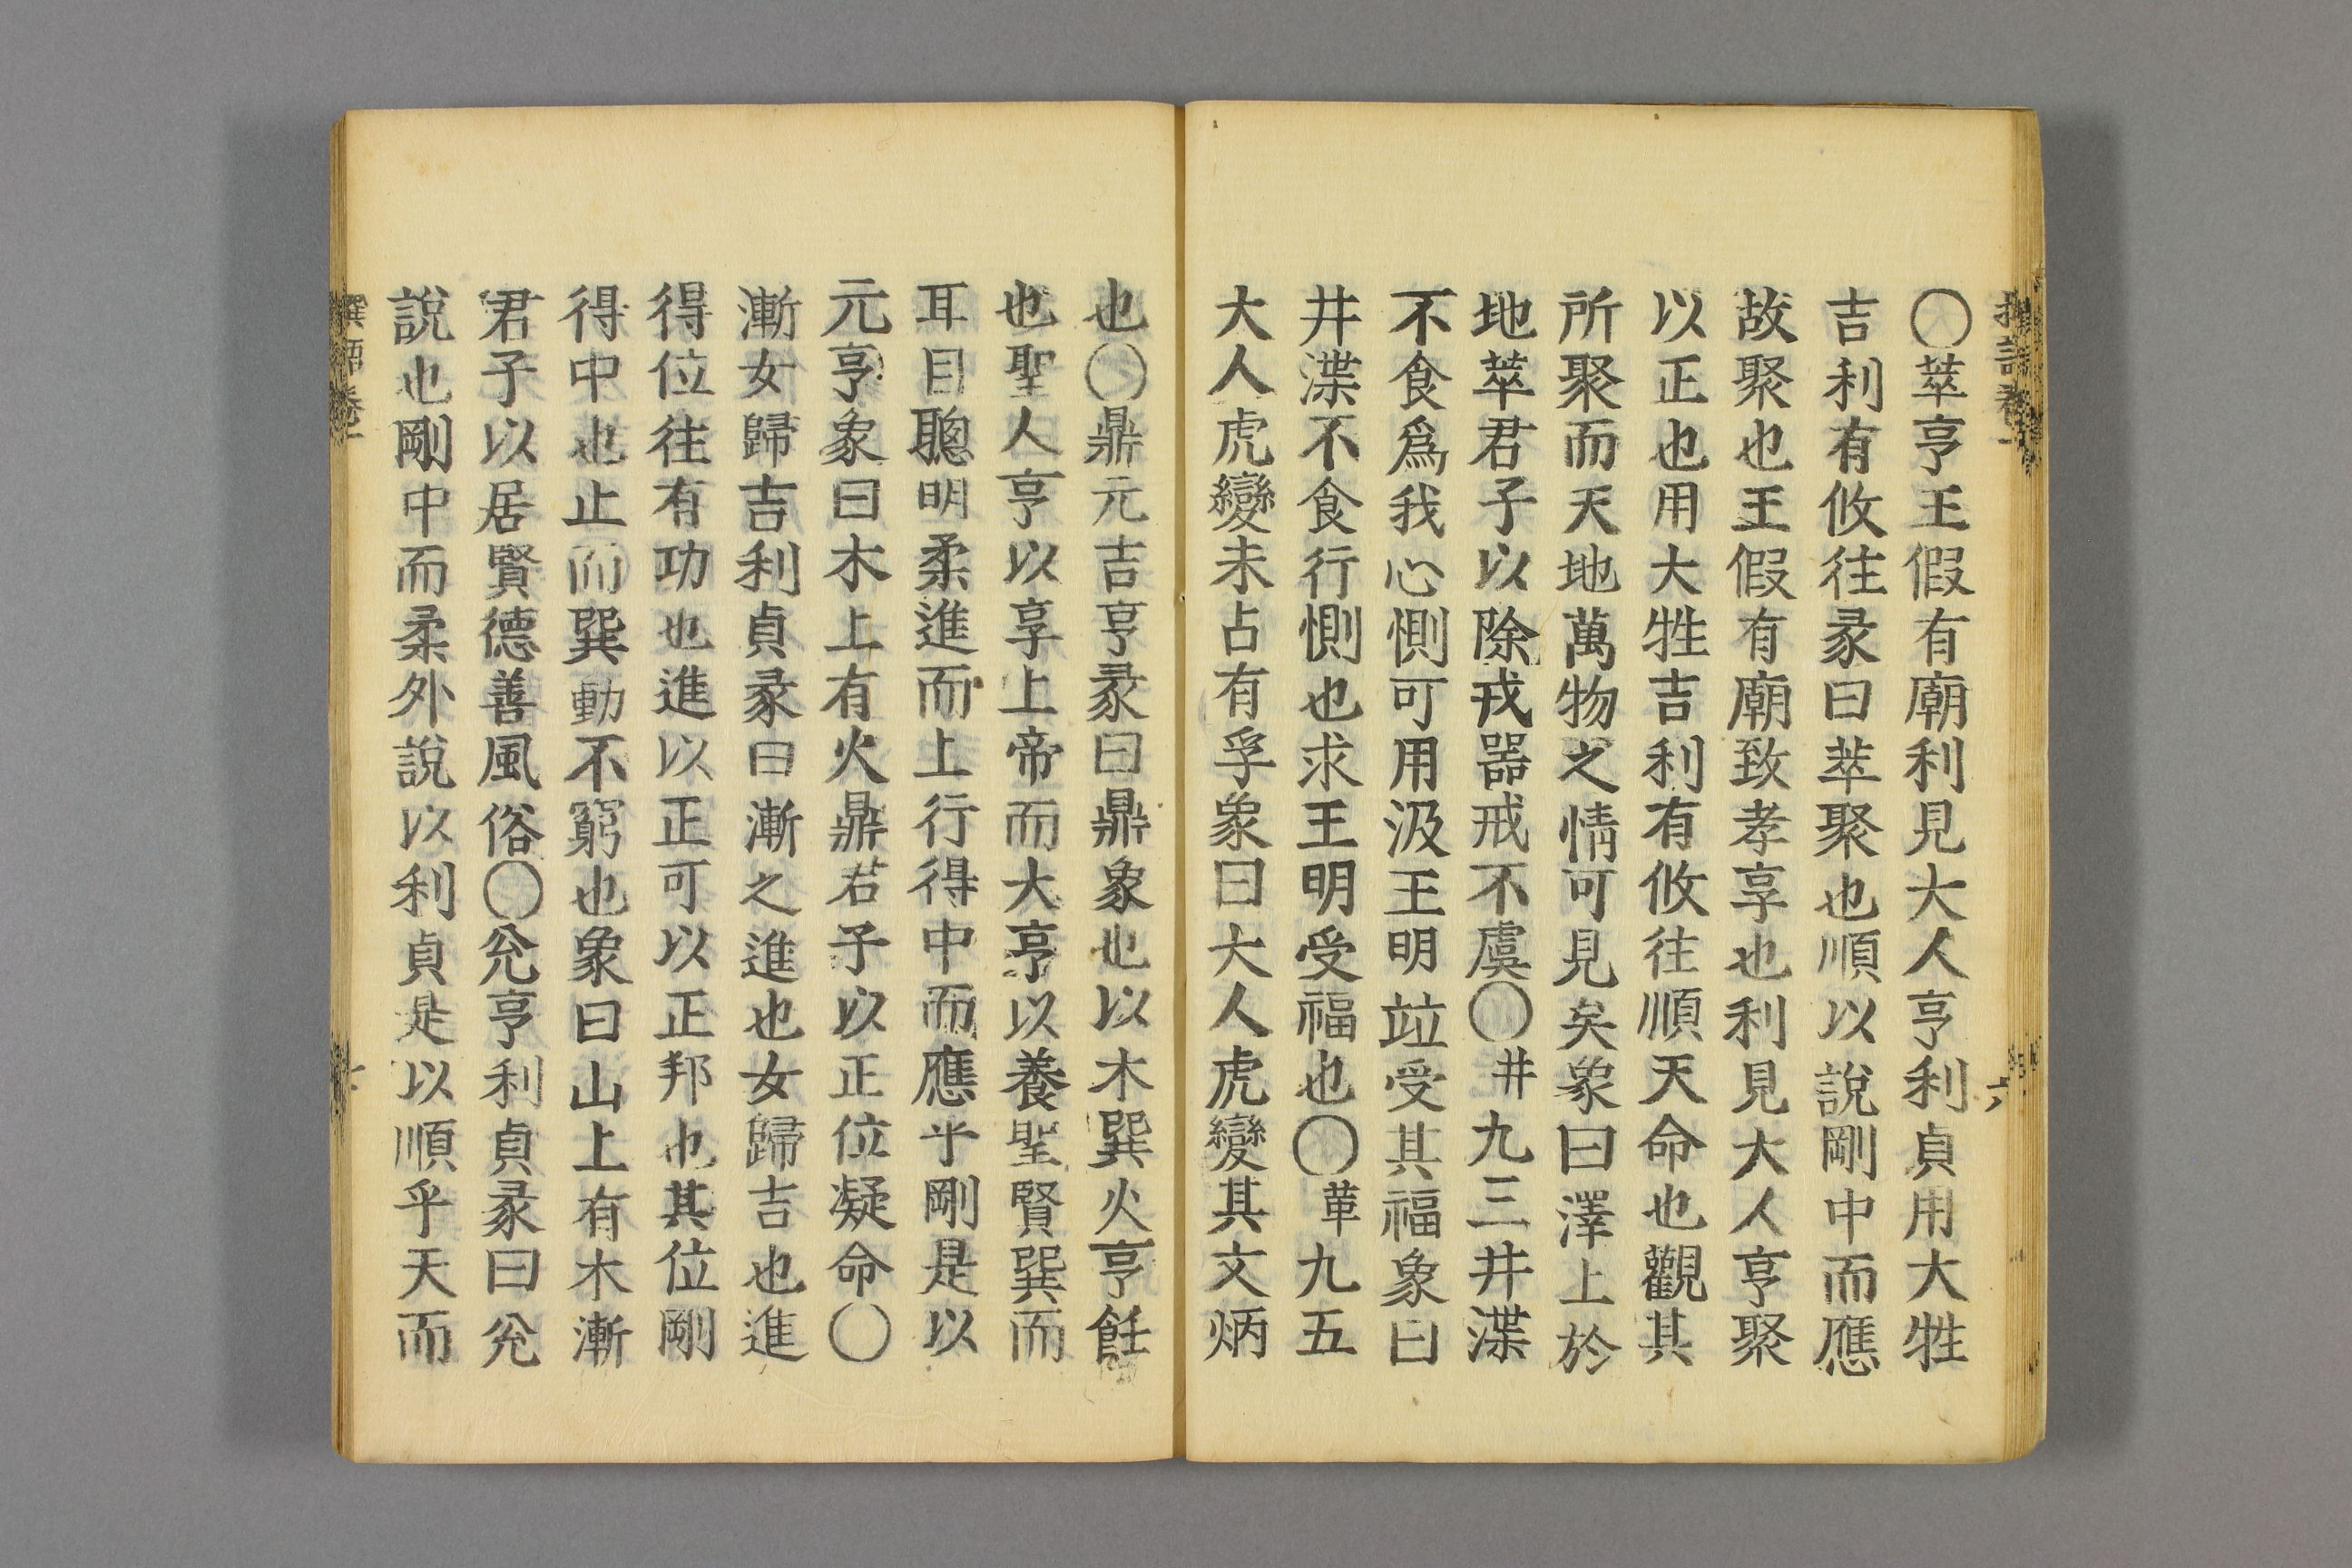 〇萃亨王假有廟利見大人亨利貞用大牲
吉利有攸往彖曰萃聚也順以說剛中而應
故聚也王假有廟致孝享也利見大人亨聚
以正也用大牲吉利有攸往順天命也觀其
所聚而天地萬物之情可見矣象曰澤上於
地萃君子以除戎器戒不虞〇井九三井渫
不食爲我心惻可用汲王明竝受其福象曰
井渫不食行惻也求王明受福也〇革九五
大人虎變未占有孚象曰大人虎變其文炳
也〇鼎元吉亨彖曰鼎象也以木巽火亨飪
也聖人亨以享上帝而大亨以養聖賢巽而
耳目聰明柔進而上行得中而應乎剛是以
元亨象曰木上有火鼎君子以正位凝命〇
漸女歸吉利貞彖曰漸之進也女歸吉也進
得位往有功也進以正可以正邦也其位剛
得中也止而巽動不窮也象曰山上有木漸
君子以居賢德善風俗〇兊亨利貞彖曰兊
說也剛中而柔外說以利貞是以順乎天而